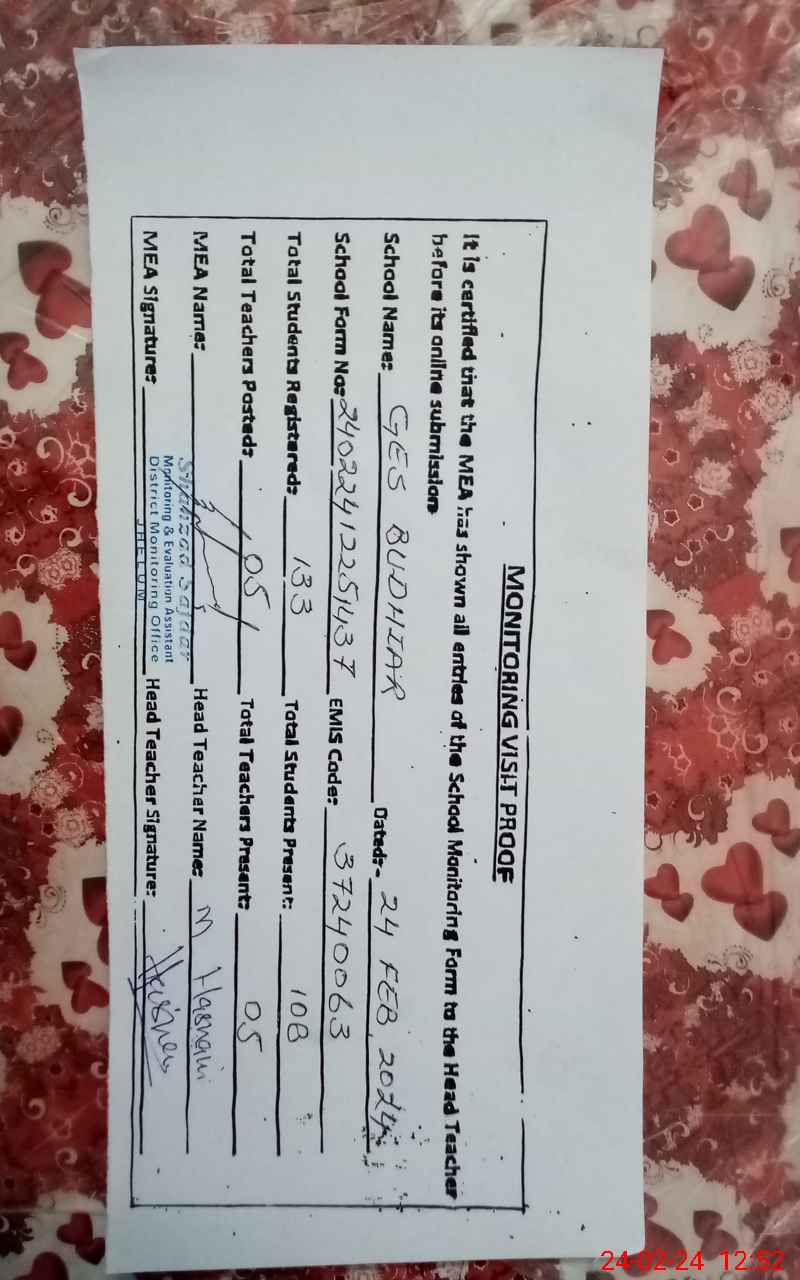 MONITORING VISIT PROOF
It is certified that the MEA has shown all entries of the School Monitoring Form to the Head Teacher
before its online submission.
School Name: GES BUDHIAR Dated:- 24 FEB, 2024
School Form No: 24022412251437 EMIS Code: 37240063
Total Students Registered: 133 Total Students Present: 108
Total Teachers Posted: 05 Total Teachers Present: 05
MEA Name: Shahzad Safdar Head Teacher Name: M Hasnain
MEA Signature: Monitoring & Evaluation Assistant Head Teacher Signature:
District Monitoring Office
JHELUM
24-02-24 12:52